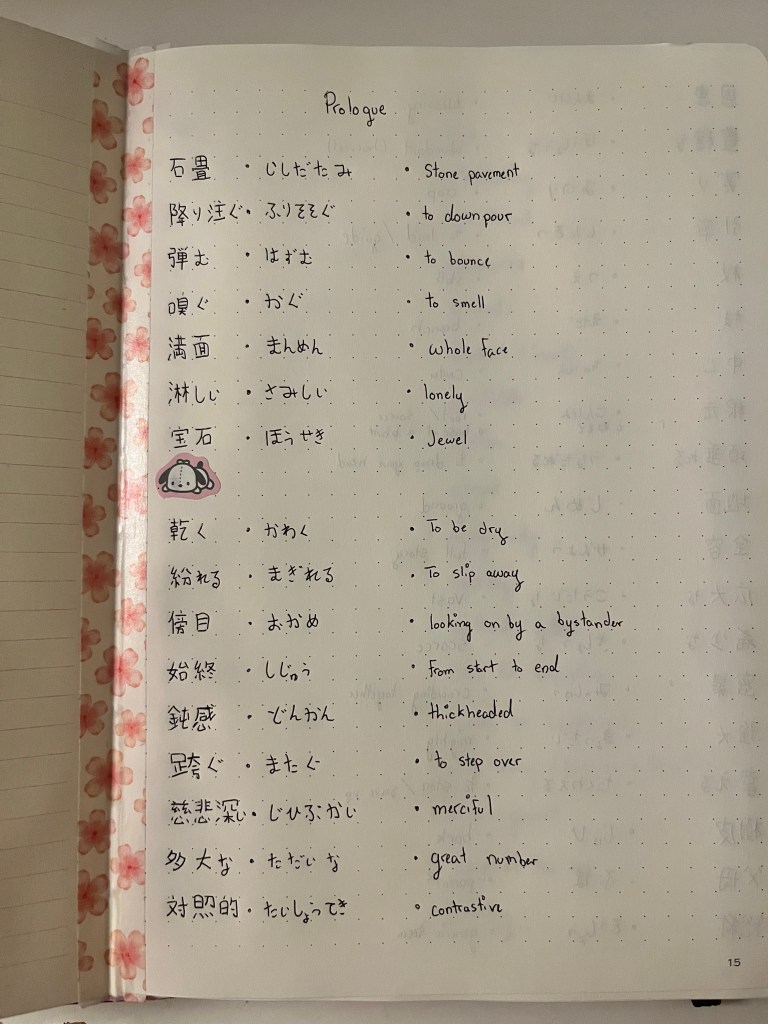 Prologue
石畳 • いしだたみ • Stone pavement
降り注ぐ • ふりそそぐ • to downpour
弾む • はずむ • to bounce
嗅ぐ • かぐ • to smell
満面 • まんめん • whole face
淋しい • さみしい • lonely
宝石 • ほうせき • Jewel
乾く • かわく • To be dry
紛れる • まぎれる • To slip away
傍目 • おかめ • looking on by a bystander
始終 • しじゅう • from start to end
鈍感 • どんかん • thickheaded
跨ぐ • またぐ • to step over
慈悲深い • じひぶかい • merciful
多大な • ただいな • great number
対照的 • たいしょってき • contrastive
15